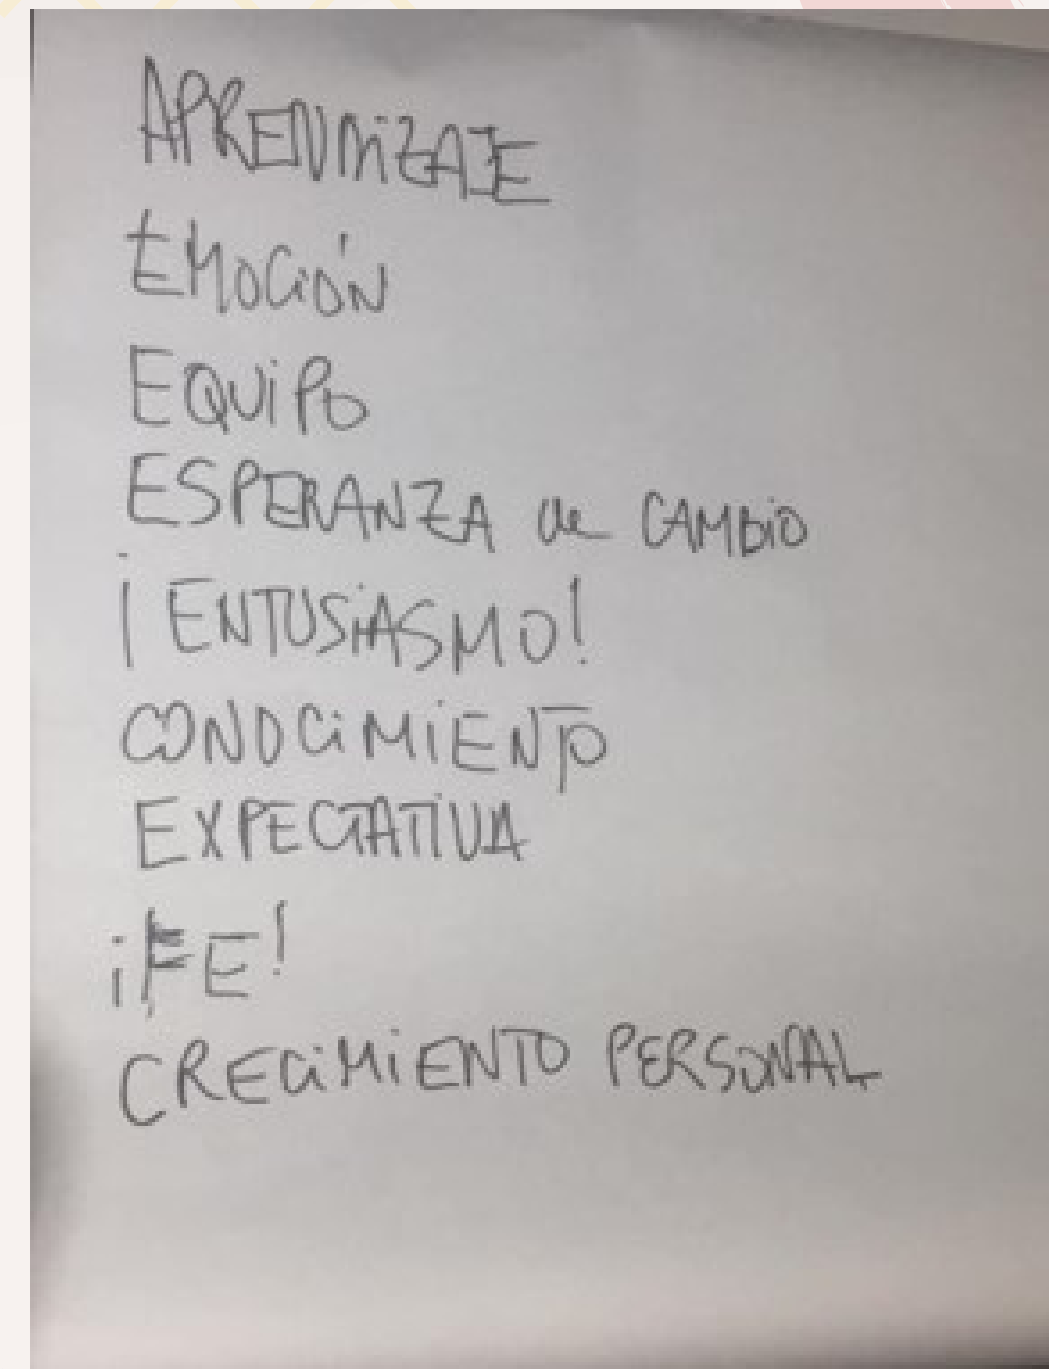 APRENDIZAJE
EMOCIÓN
EQUIPO
ESPERANZA de CAMBIO
¡ENTUSIASMO!
CONOCIMIENTO
EXPECTATIVA
¡FE!
CRECIMIENTO PERSONAL